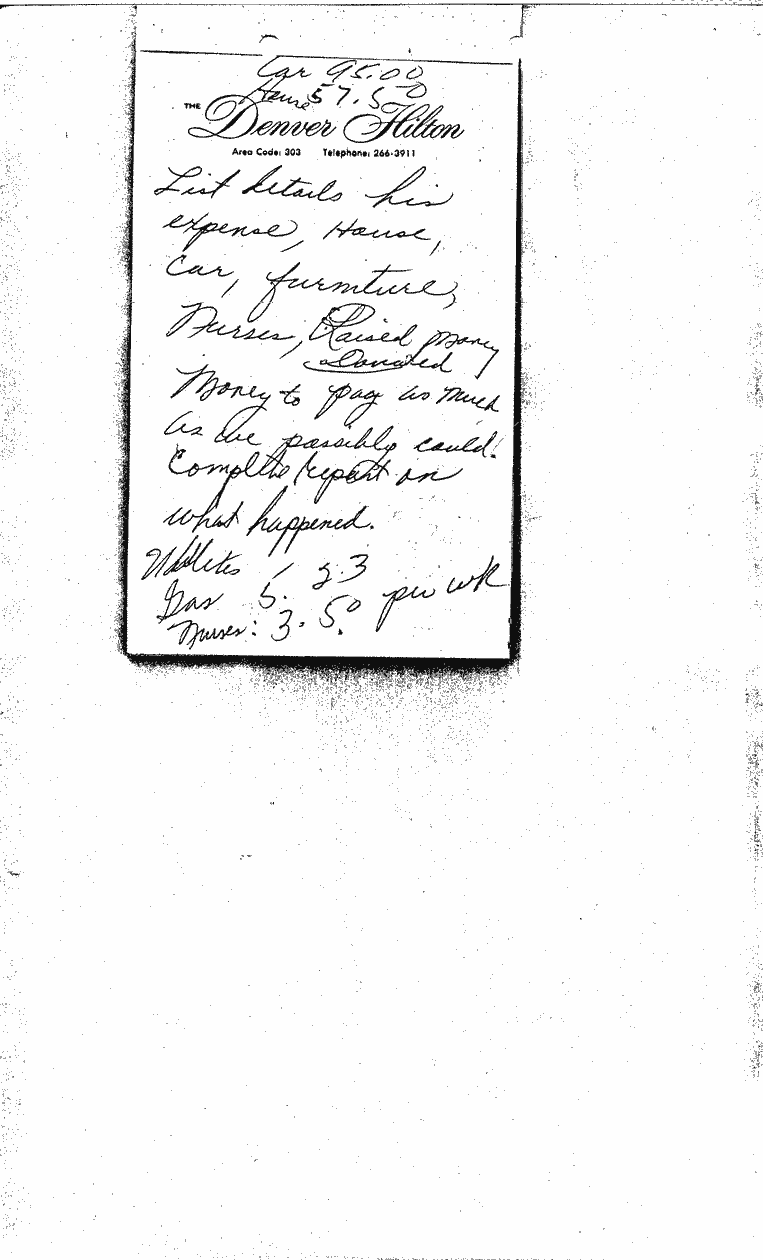 Car 95.00
House 57.50
THE
Denver Hilton
Area Code: 303 Telephone: 266-3911
List details his
expense, House,
Car, furniture,
Nurses, Raised money
Donated
Money to pay as much
as we possibly could.
Complete report on
what happened.
23
Gas 5. per wk
Nurses: 3.50